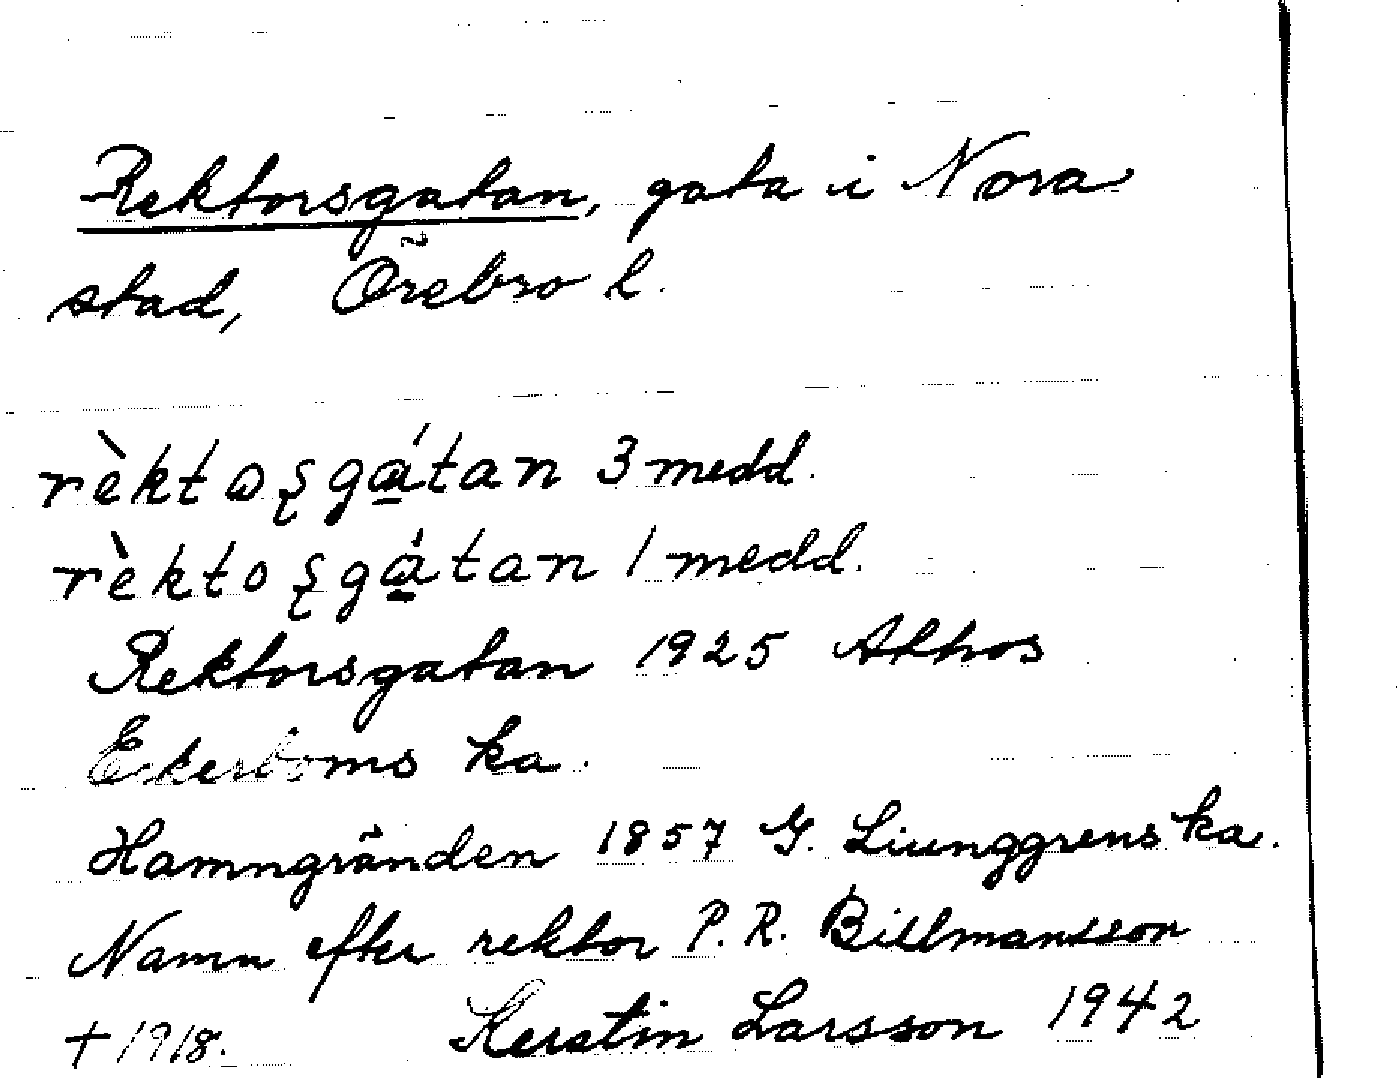 Rektorsgatan, gata i Nora
stad, Örebro l.
rèktꝏʂgɑ̲́tan 3 medd.
rèktoʂgɑ̲́tan 1 medd.
Rektorsgatan 1925 Athos
Ekerboms ka.
Hamngränden 1857 G. Liunggrens ka.
Namn efter rektor P. R. Billmansson
† 1918. Kerstin Larsson 1942